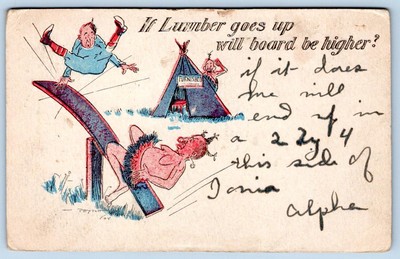 If Lumber goes up
will board be higher?
if it does
me will
end up in
a 2 2y 4
this side of
Ionia
alpha